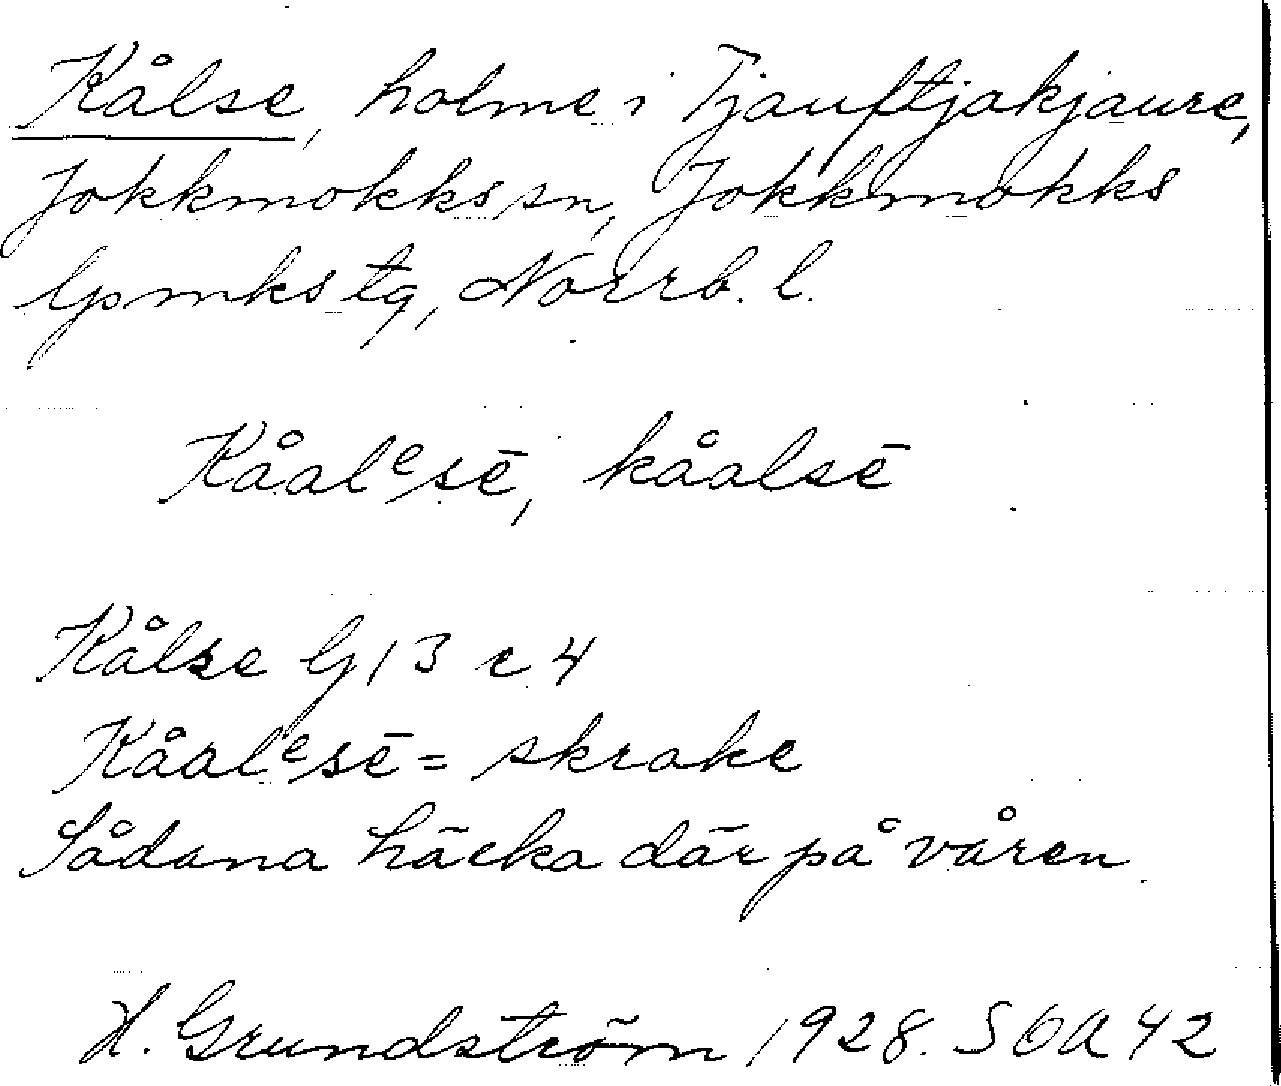 Kålse, holme i Tjauftjakjaure,
Jokkmokks sn, Jokkmokks
lpmks tg, Norrb. l.
Kåalᵉsē, kåalsē
Kålse lj 13 c 4
Kåalᵉsē = skrake
Sådana häcka där på våren.
H. Grundström 1928. SOA 42